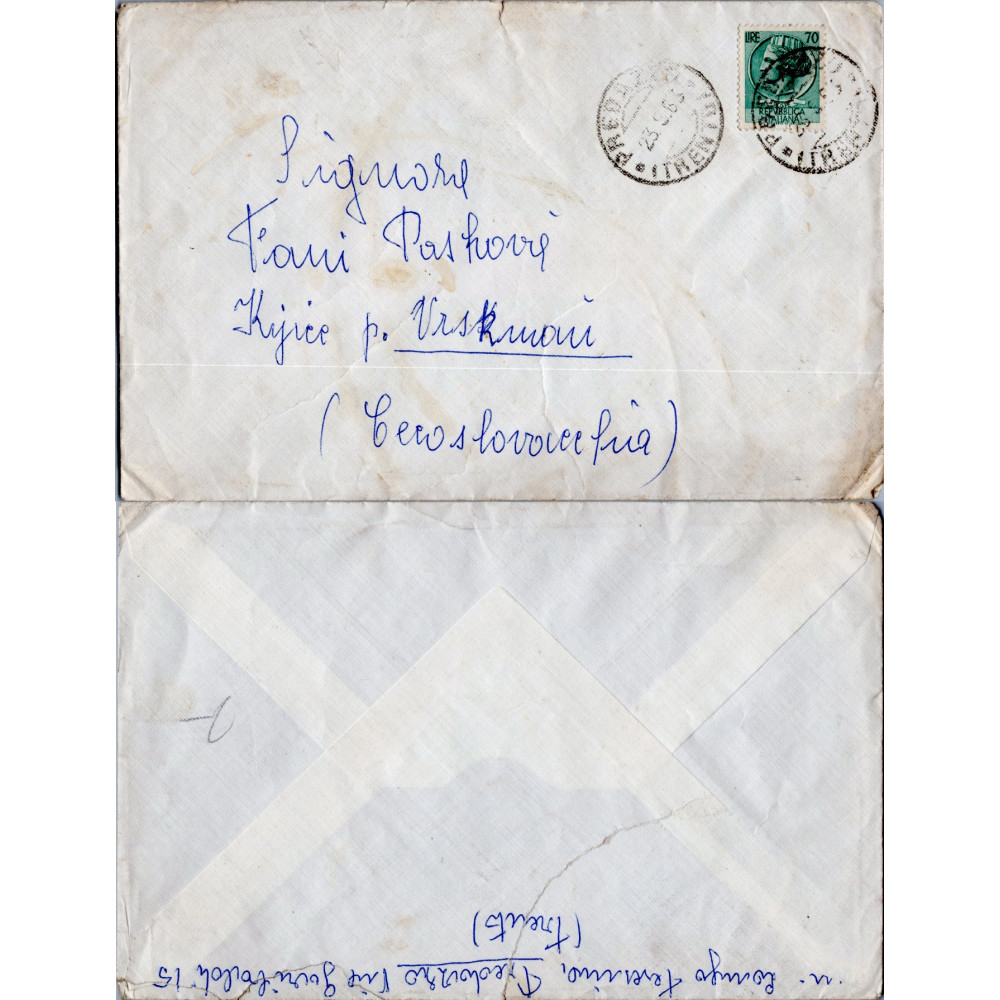 LIRE 70
REPVBBLICA
ITALIANA
PREDAZZO (TRENTO)
23.9.63
Signora
Fani Paskovà
Kyjice p. Vrskmaň
(Cecoslovacchia)
Longo Teresina, Predazzo Via Garibaldi 15
(Trento)